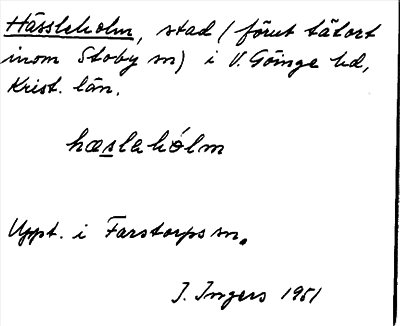 Hässleholm, stad (förut tätort
inom Stoby sn) i V. Göinge hd,
Krist. län.
hæslehólm
Uppt. i Farstorps sn.
I. Ingers 1951